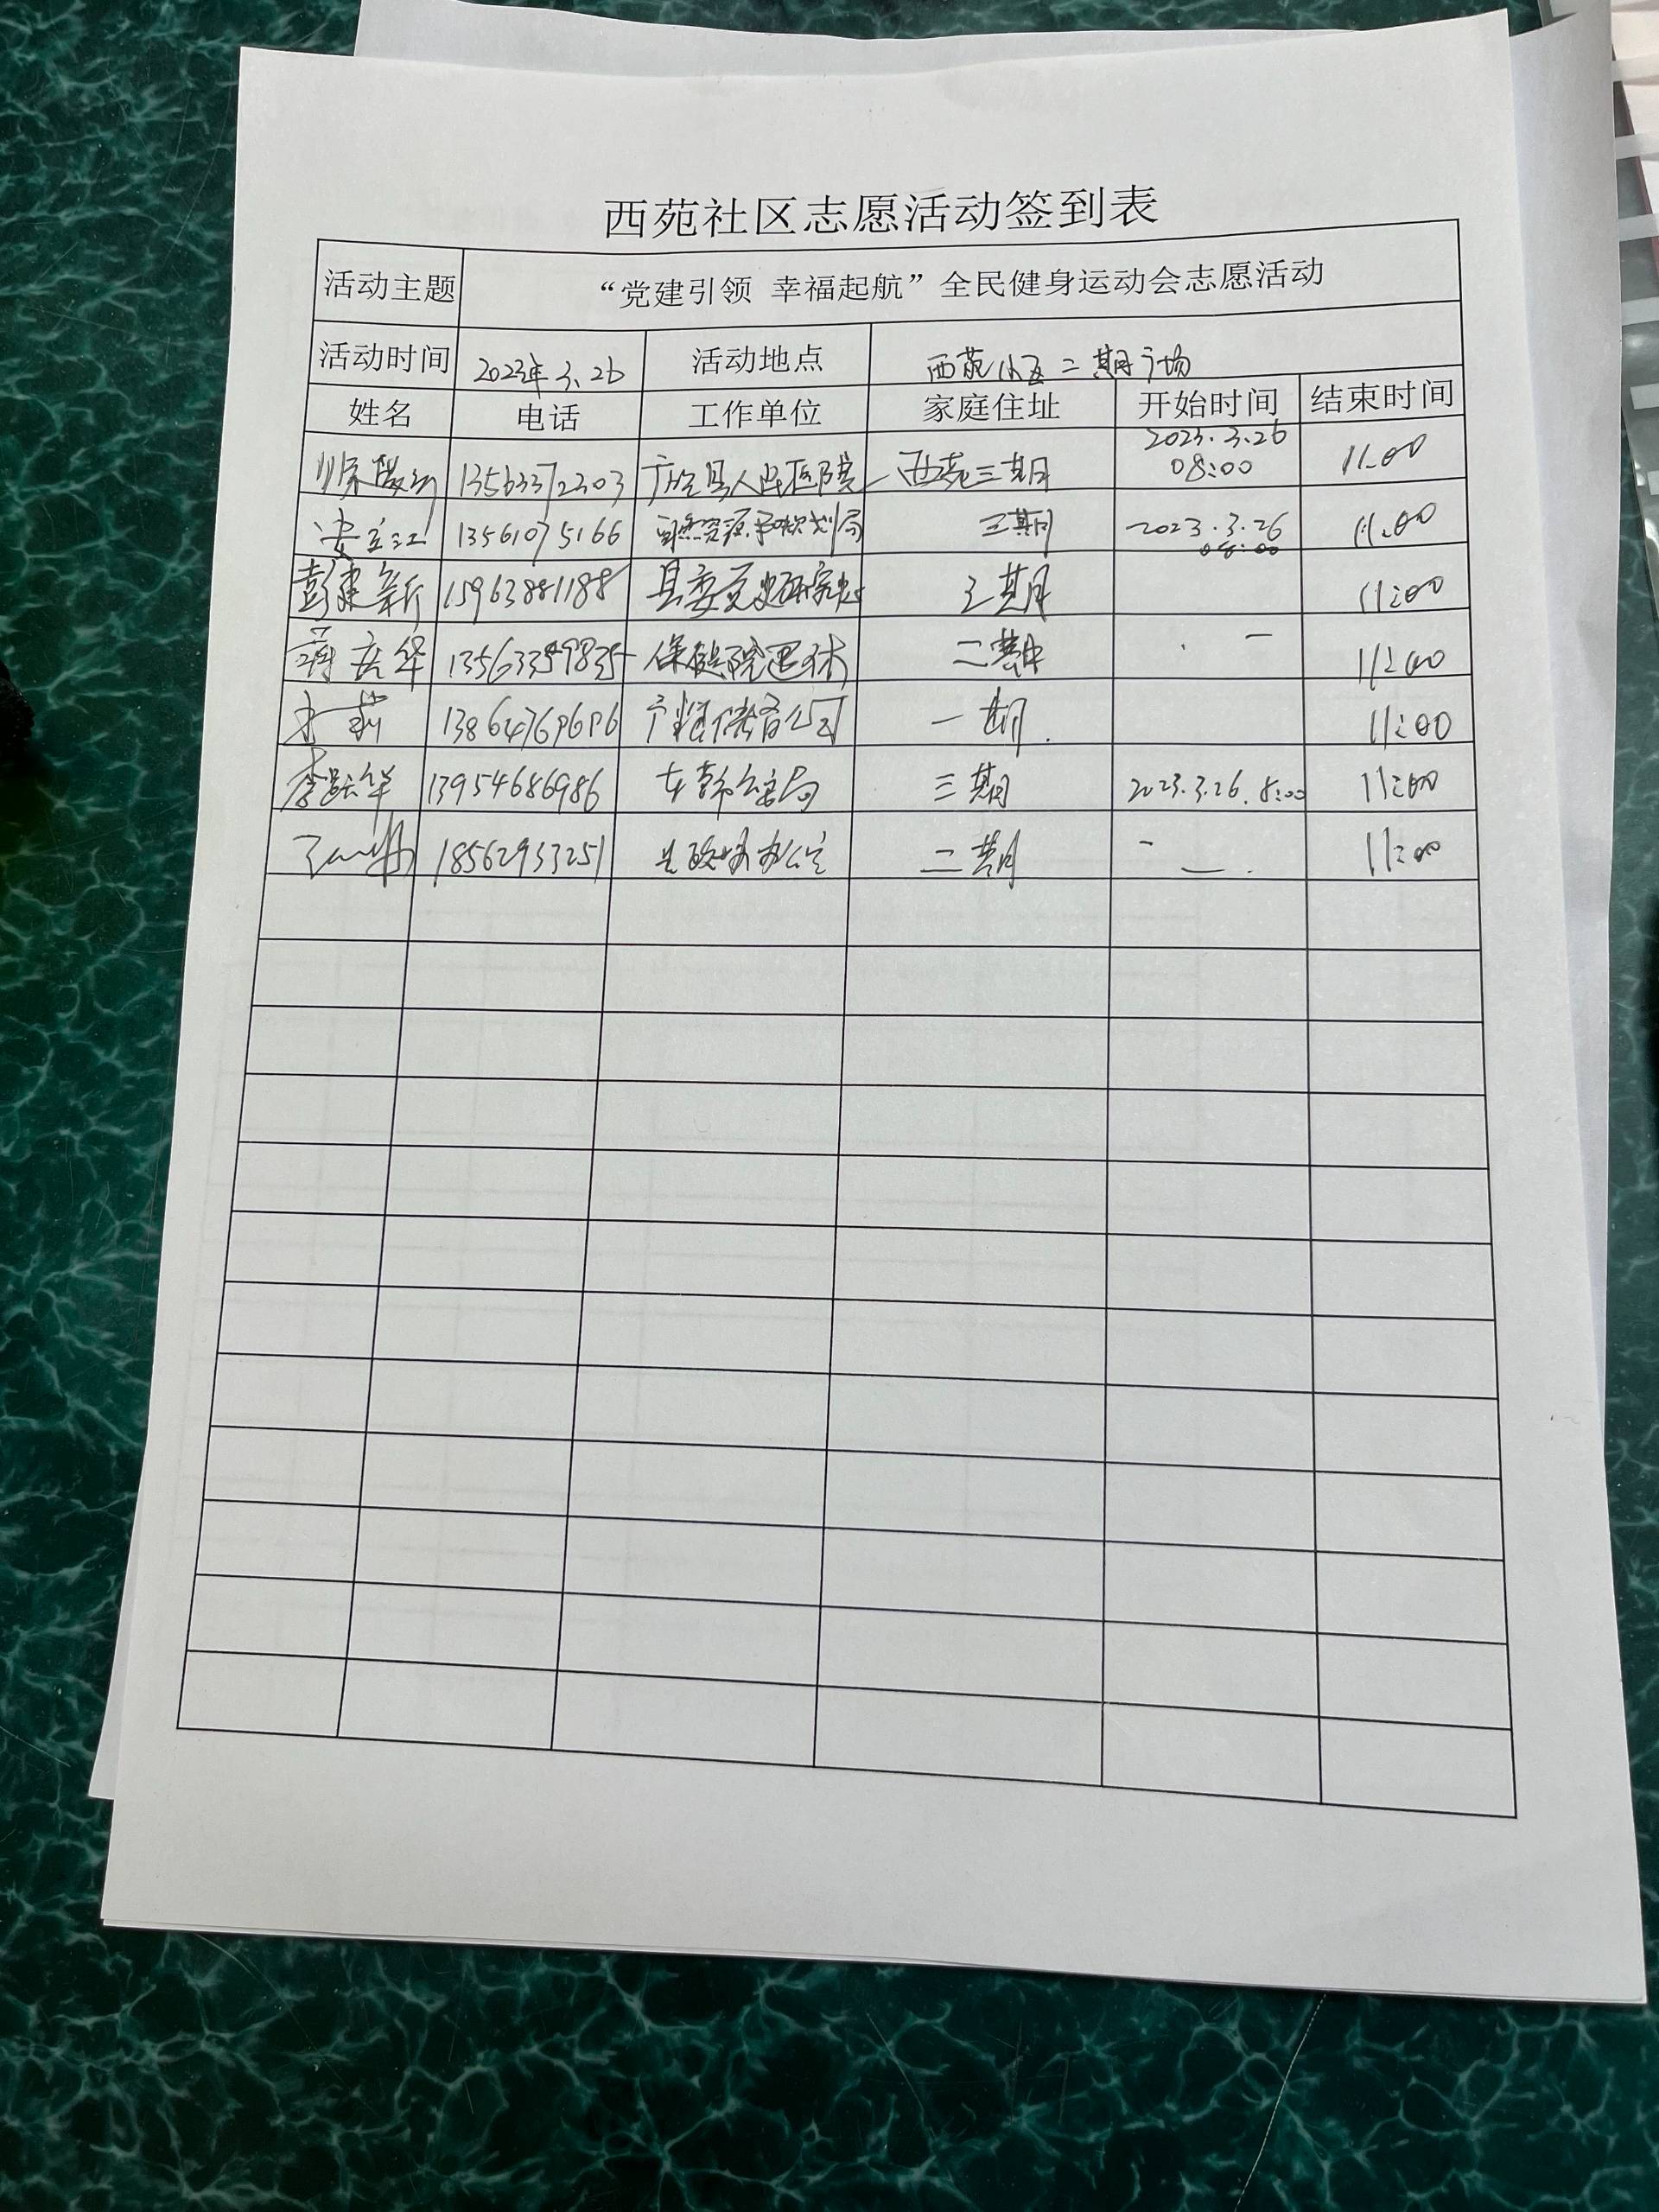 西苑社区志愿活动签到表
活动主题 “党建引领 幸福起航”全民健身运动会志愿活动
活动时间 2023年3.26 活动地点 西苑小区二期广场
姓名 电话 工作单位 家庭住址 开始时间 结束时间
13563372303 广饶县人民医院 西苑三期 2023.3.26 08:00 11:00
安立江 13561075166 自然资源和规划局 三期 2023.3.26 08:00 11:00
彭建新 15963881188 县委党史研究 三期 11:00
蒋 华 13563359835 保健院退休 二期 11:00
莉 13864769696 储备公司 一期. 11:00
李跃华 13954686986 公安局 三期 2023.3.26. 8:00 11:00
18562953251 办公室 二期 11:00